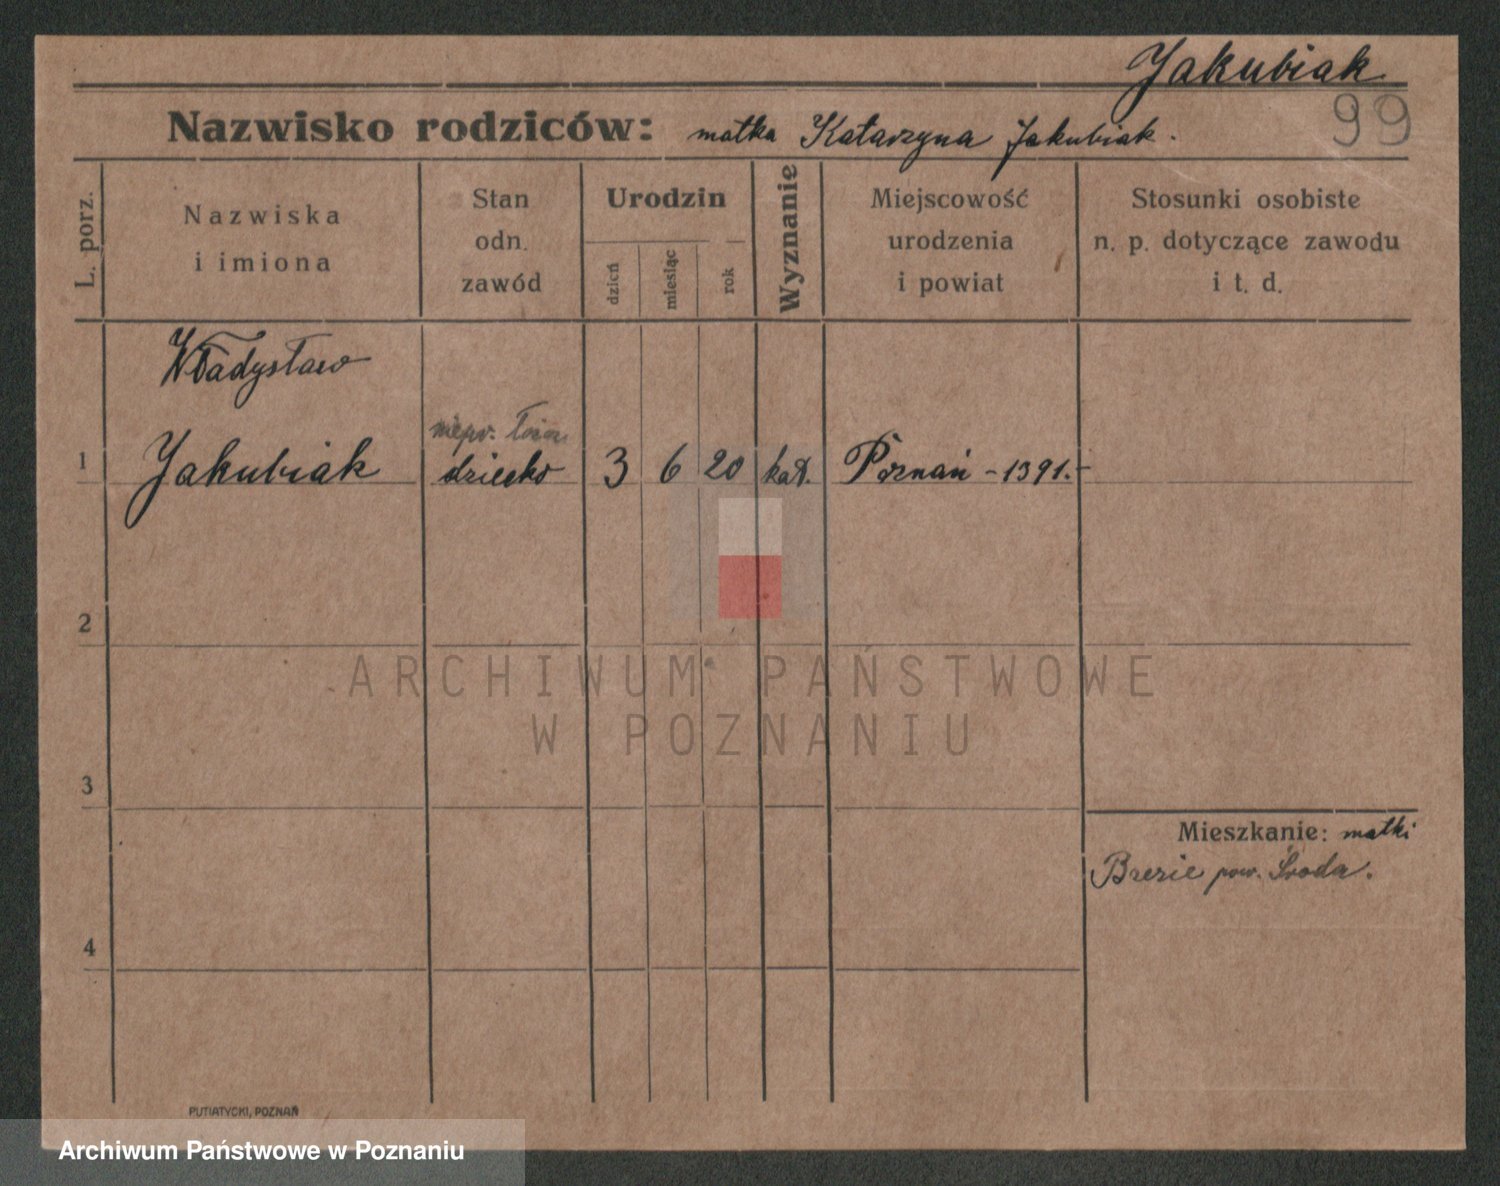 Jakubiak
99
Nazwisko rodziców: matka Katarzyna Jakubiak.
L. porz.
Nazwiska
i imiona
Stan
odn.
zawód
Urodzin
dzień
miesiąc
rok
Wyznanie
Miejscowość
urodzenia
i powiat
Stosunki osobiste
n. p. dotyczące zawodu
i t. d.
Władysław
niepr.
1 Jakubiak dziecko 3 6 20 kat. Poznań - 1391.-
2
ARCHIWUM PAŃSTWOWE
W POZNANIU
3
Mieszkanie: matki
Brezie pow. Środa.
4
PUTIATYCKI, POZNAŃ
Archiwum Państwowe w Poznaniu